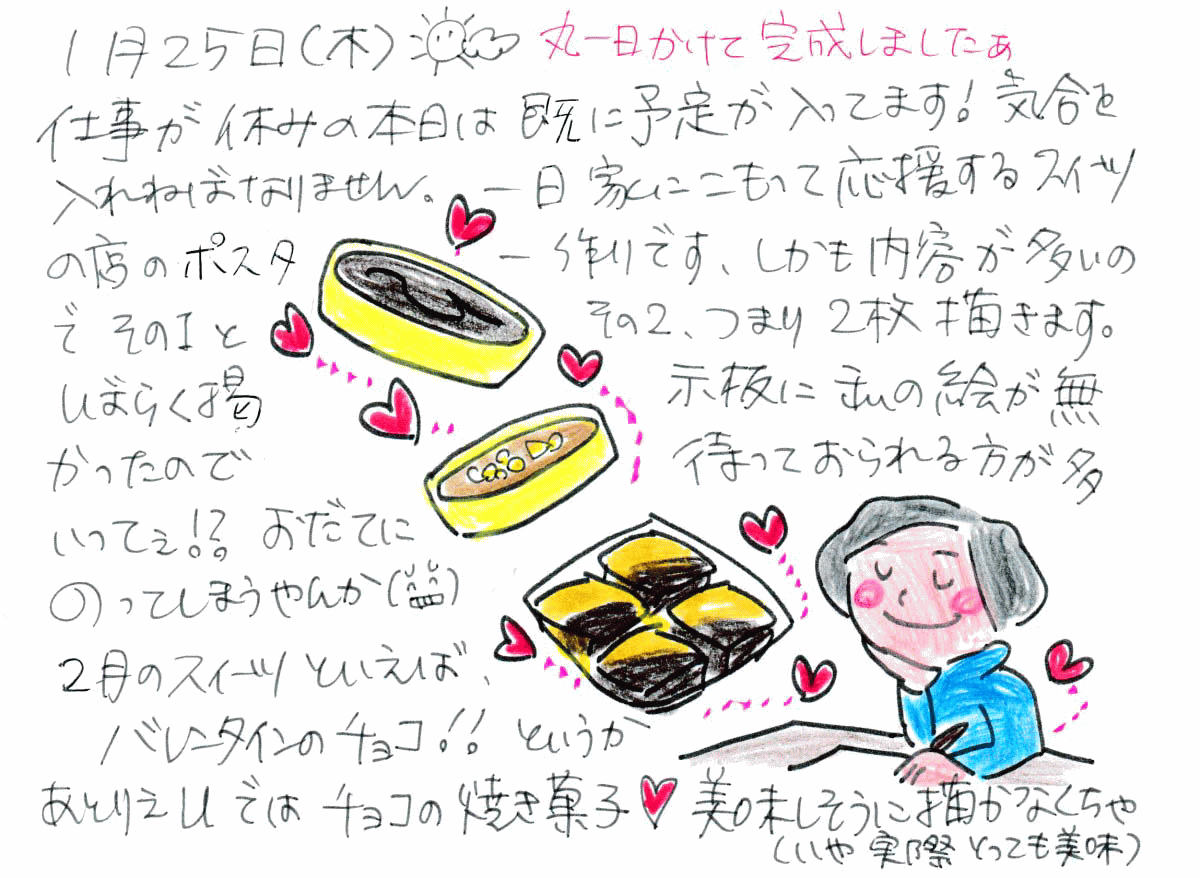 1月25日(木) 丸一日かけて完成しましたぁ
仕事が休みの本日は既に予定が入ってます!気合を
入れねばなりません。一日家にこもって応援するスイーツ
の店のポスター作りです、しかも内容が多いの
でその1とその2、つまり2枚描きます。
しばらく掲示板に私の絵が無
かったので待っておられる方が多
いってぇ!?おだてに
のってしまうやんか
2月のスイーツといえば、
バレンタインのチョコ!!というか
あとりえUではチョコの焼き菓子♥美味しそうに描かなくちゃ
(いや実際とっても美味)